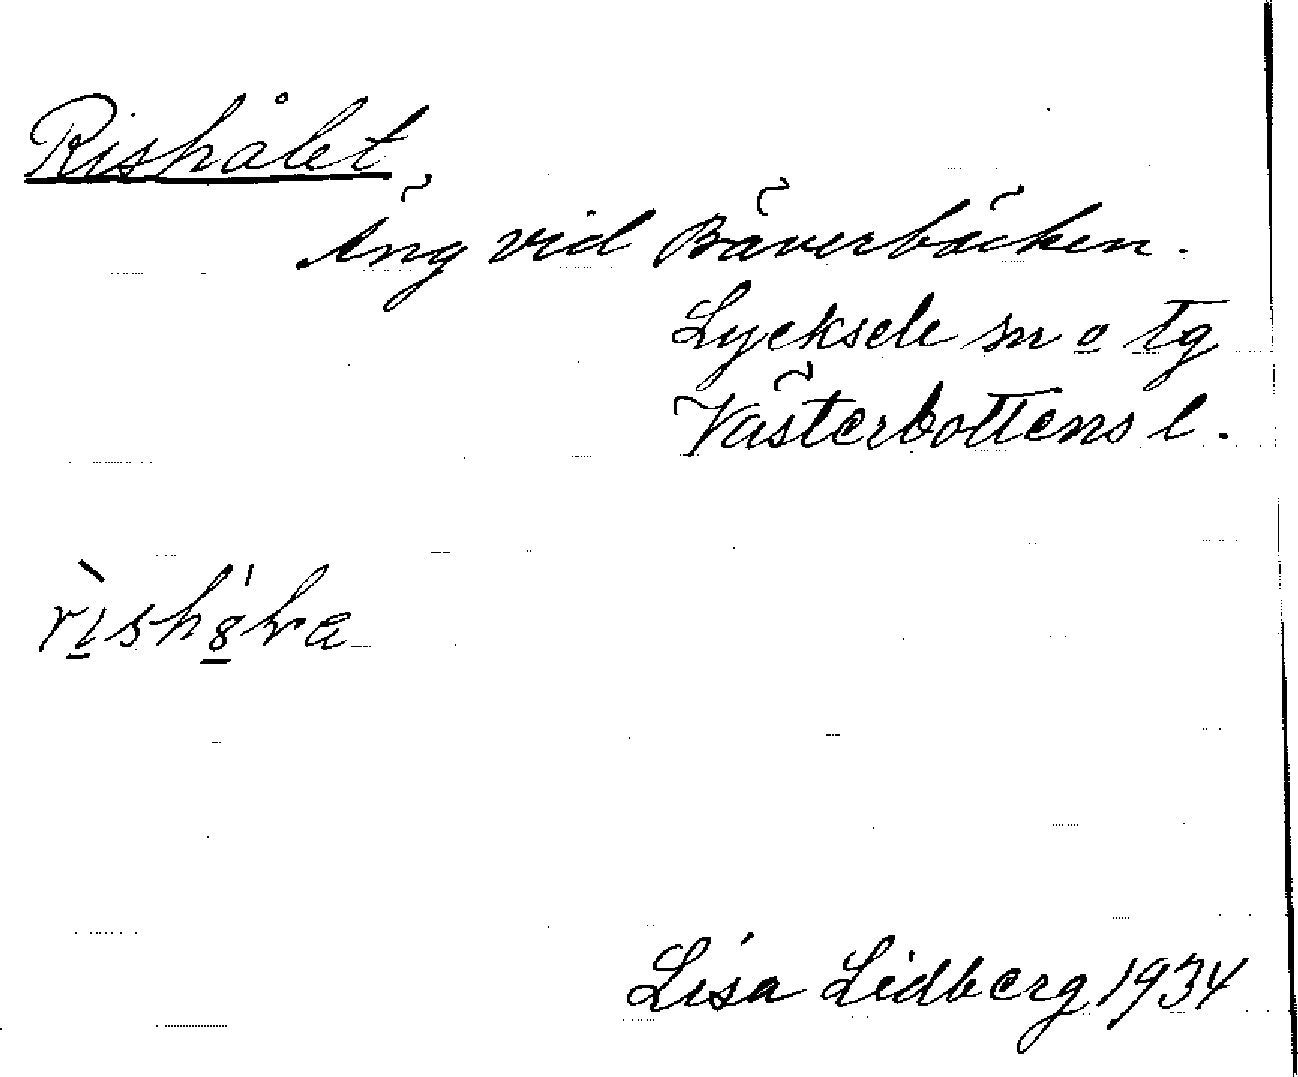 Rishålet
Äng vid Bäverbäcken.
Lycksele sn o tg
Västerbottens l.
Lisa Lidberg 1934